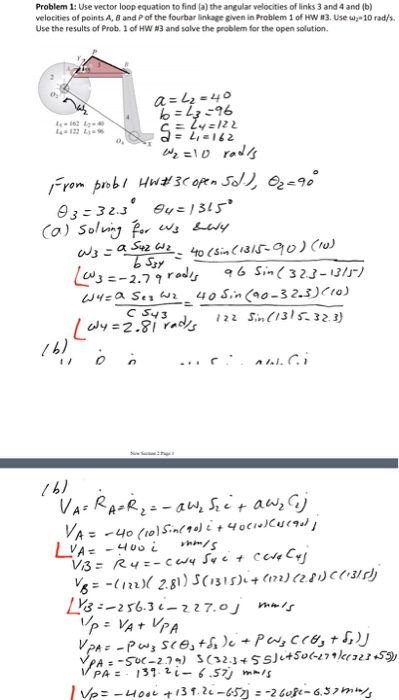 Problem 1: Use vector loop equation to find (a) the angular velocities of links 3 and 4 and (b)
velocities of points A, B and P of the fourbar linkage given in Problem 1 of HW #3. Use ω₂=10 rad/s.
Use the results of Prob. 1 of HW #3 and solve the problem for the open solution.
P
B
A
2
4
O₂
ω₂
O₄
X
L₁=162 L₂=40
L₄=122 L₃=96
a = L₂ = 40
b = L₃ = 96
C = L₄ = 122
d = L₁ = 162
ω₂ = 10 rad/s
From probl HW#3 (open Sol), θ₂=90°
θ3 = 32.3° θ4 = 131.5°
(a) Solving for ω3 & ω4
ω3 = a S42 ω2 / b S34 = 40 (sin(131.5-90)) (10) / 96 Sin(32.3-131.5)
ω3 = -2.79 rad/s
ω4 = a S23 ω2 / C S43 = 40 Sin(90-32.3)(10) / 122 Sin(131.5-32.3)
ω4 = 2.81 rad/s
(b)
New Section 2 Page 1
(b)
VA = ṘA = Ṙ2 = -aω2 S2 i + aω2 C2 j
VA = -40 (10) Sin(90) i + 40(10) Cos(90) j
VA = -400 i mm/s
VB = Ṙ4 = -Cω4 S4 i + Cω4 C4 j
VB = -(122)(2.81) S(131.5) i + (122)(2.81) C(131.5) j
VB = -256.3 i - 227.0 j mm/s
VP = VA + VPA
VPA = -Pω3 S(θ3+δ3) i + Pω3 C(θ3+δ3) j
VPA = -50(-2.79) S(32.3+55) i + 50(-2.79) C(32.3+55) j
VPA = 139.2 i - 6.57 j mm/s
VP = -400 i + 139.2 i - 6.57 j = -260.8 i - 6.57 mm/s